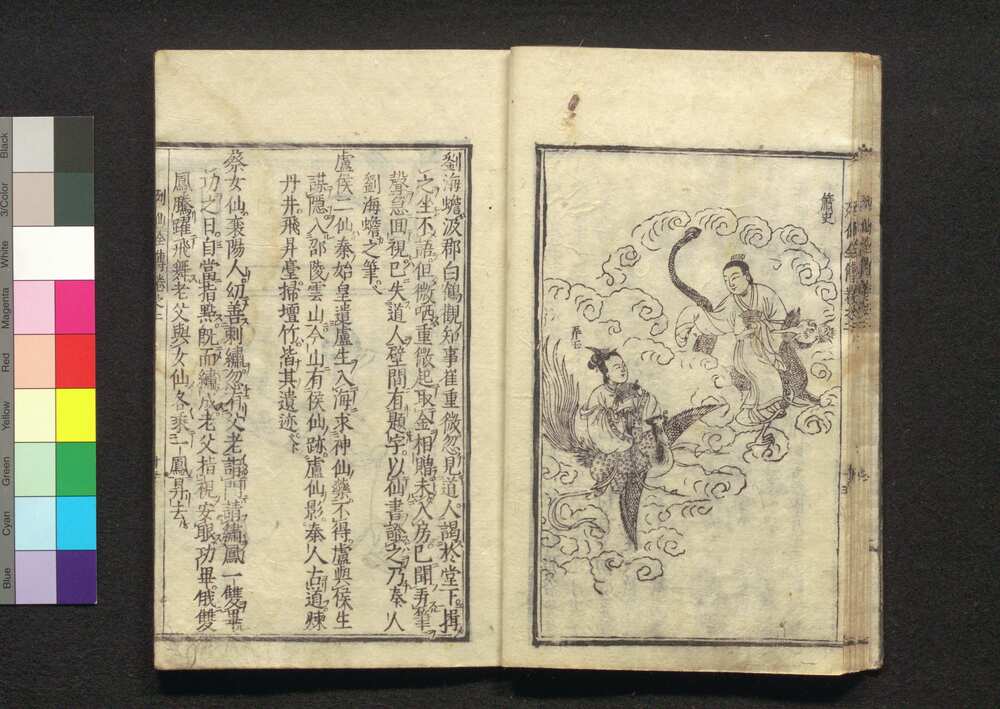 簫史
弄玉
劉海蟾汲郡白鶴觀知事崔重微忽見道人謁於堂下揖
之坐不語但微哂重微起取金相贈未入房已聞弄筆
聲急回視已失道人壁間有題字以仙書證之乃秦人
劉海蟾之筆
盧侯二仙秦始皇遣盧生入海求神仙藥不得盧與侯生
謀隱入邵陵雲山今山有侯仙跡盧仙影秦人古道煉
丹井飛升臺掃壇竹皆其遺迹
蔡女仙襄陽人幼善刺繡忽有父老詣門請繡鳳一雙畢
功之日自當指點既而繡成老父指視安眼功畢俄雙
鳳騰躍飛舞老父與女仙各乘一鳳昇去
Black
3/Color
White
Magenta
Red
Yellow
Green
Cyan
Blue